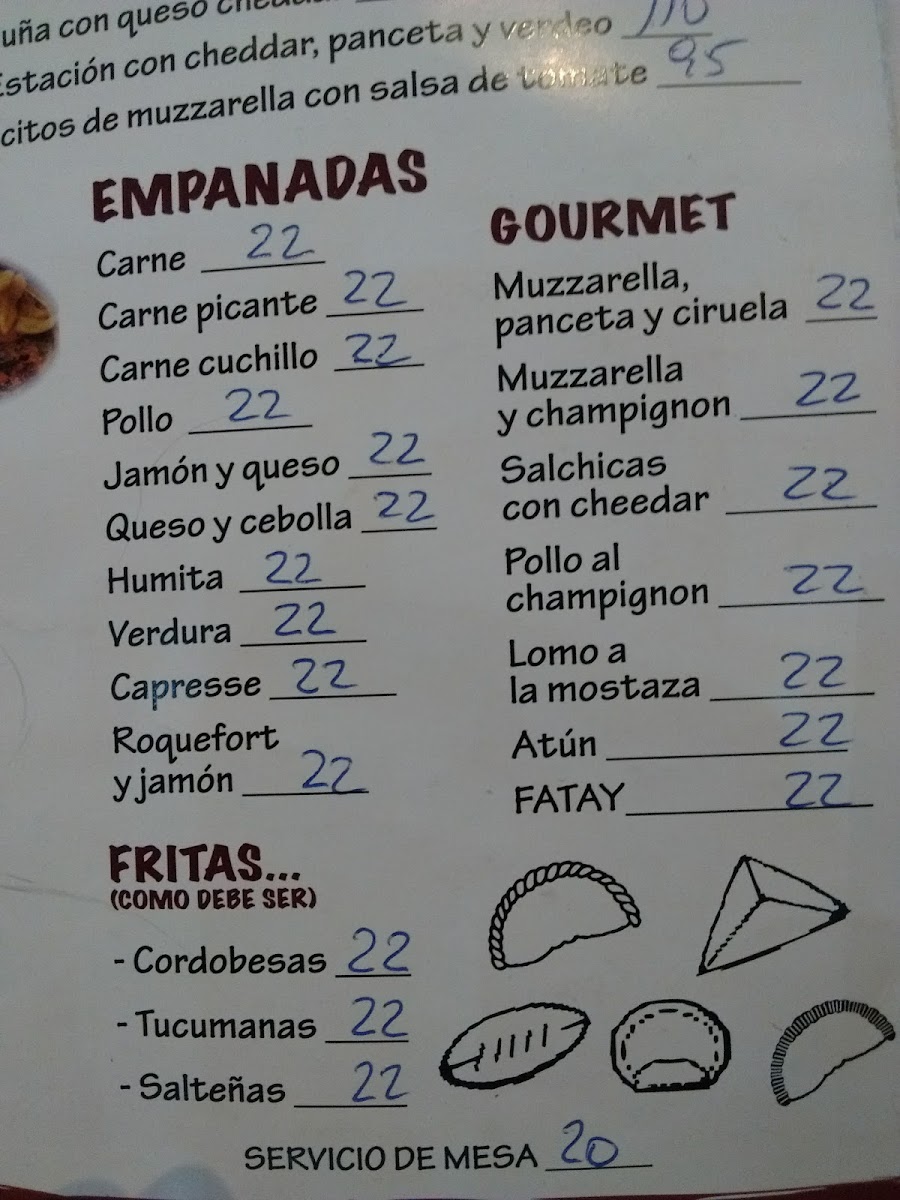 uña con queso
Estación con cheddar, panceta y verdeo 110
citos de muzzarella con salsa de tomate 95
EMPANADAS
Carne 22
Carne picante 22
Carne cuchillo 22
Pollo 22
Jamón y queso 22
Queso y cebolla 22
Humita 22
Verdura 22
Capresse 22
Roquefort
y jamón 22
GOURMET
Muzzarella,
panceta y ciruela 22
Muzzarella
y champignon 22
Salchicas
con cheedar 22
Pollo al
champignon 22
Lomo a
la mostaza 22
Atún 22
FATAY 22
FRITAS...
(COMO DEBE SER)
- Cordobesas 22
- Tucumanas 22
- Salteñas 22
SERVICIO DE MESA 20